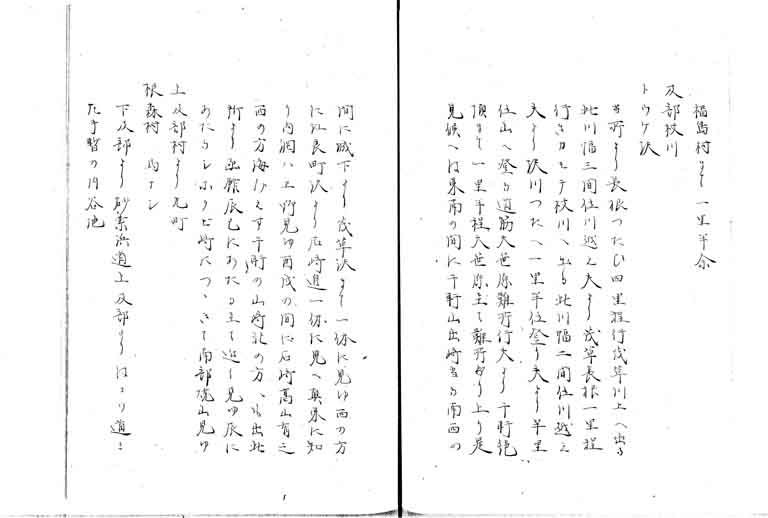 福島村まて一里半余
及部枝川
トウケ沢
当所より長根つたひ四里程行茂草川上へ出る
此川幅三間位川越え夫より茂草長根一里程
行きカモテ枝川へ出る此川幅二間位川越え
夫より沢川つたへ一里半位登り夫より半里
位山へ登る道筋大世原難所行夫より千軒絶
頂まて一里半程大世原至て難所也上り是
見候へは東南の間に千軒山出崎当る南西の
間に城下より茂草沢まて一体に見ゆ西の方
に江良町沢より石崎迄一体に見へ奥東に知
り内澗ハ上野見ゆ酉戌の間に石崎高山有之
西の方海見えす千軒の山崎社の方へも出此
所より函館辰巳にあたる至て近く見ゆ辰に
あたりシホクビ崎につゝきて南部焼山見ゆ
上及部村より元町
根森村 馬ナシ
下及部より砂素浜道上及部よりはコリ道ミ
た子智の内谷地